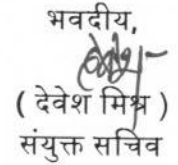 भवदीय,
( देवेश मिश्र )
संयुक्त सचिव